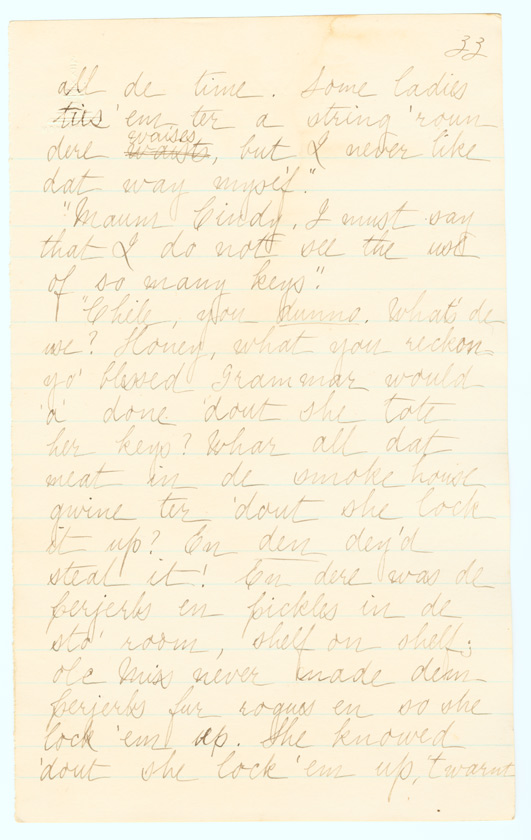 33
all de time. Some ladies
ties 'em ter a string 'roun
waises
dere waists, but I never like
dat way myse'f."
"Maum Cindy, I must say
that I do not see the use
of so many keys".
"Chile, you dunno. What's de
use? Honey, what you reckon
yo' blessed Grammar would
'a' done 'dout she tote
her keys? Whar all dat
meat in de smoke house
gwine ter 'dout she lock
it up? En den dey'd
steal it! En dere was de
perjerbs en pickles in de
sto' room, shelf on shelf;
ole Miss never made dem
perjerbs fur rogues en so she
lock 'em up. She knowed
'dout she lock 'em up, 'twarnt